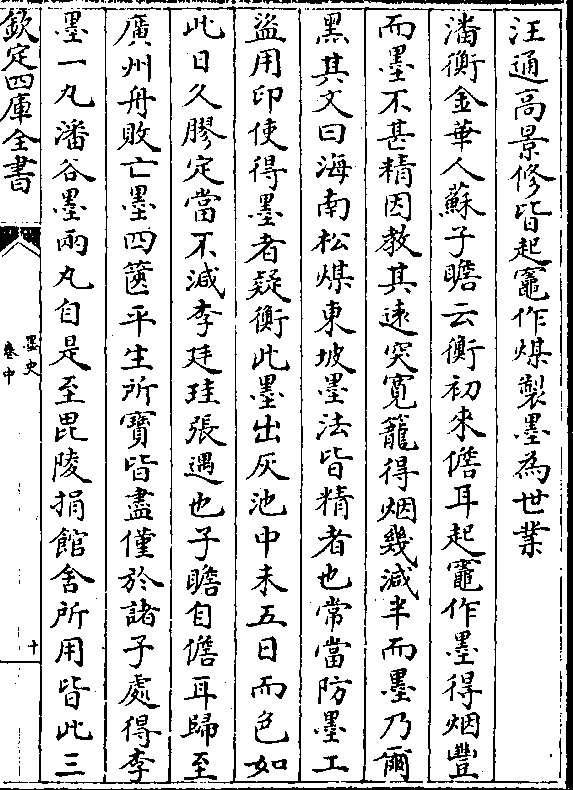 汪通高景修皆起竈作煤製墨為世業
潘衡金華人蘇子瞻云衡初來儋耳起竈作墨得烟豐
而墨不甚精因教其遠突寛籠得烟幾減半而墨乃爾
黑其文曰海南松煤東坡墨法皆精者也常當防墨工
盜用印使得墨者疑衡此墨出灰池中未五日而色如
此日久膠定當不減李廷珪張遇也子瞻自儋耳歸至
廣州舟敗亡墨四篋平生所寶皆盡僅於諸子處得李
墨一丸潘谷墨兩丸自是至毘陵捐館舍所用皆此三
欽定四庫全書
墨史
卷中
十